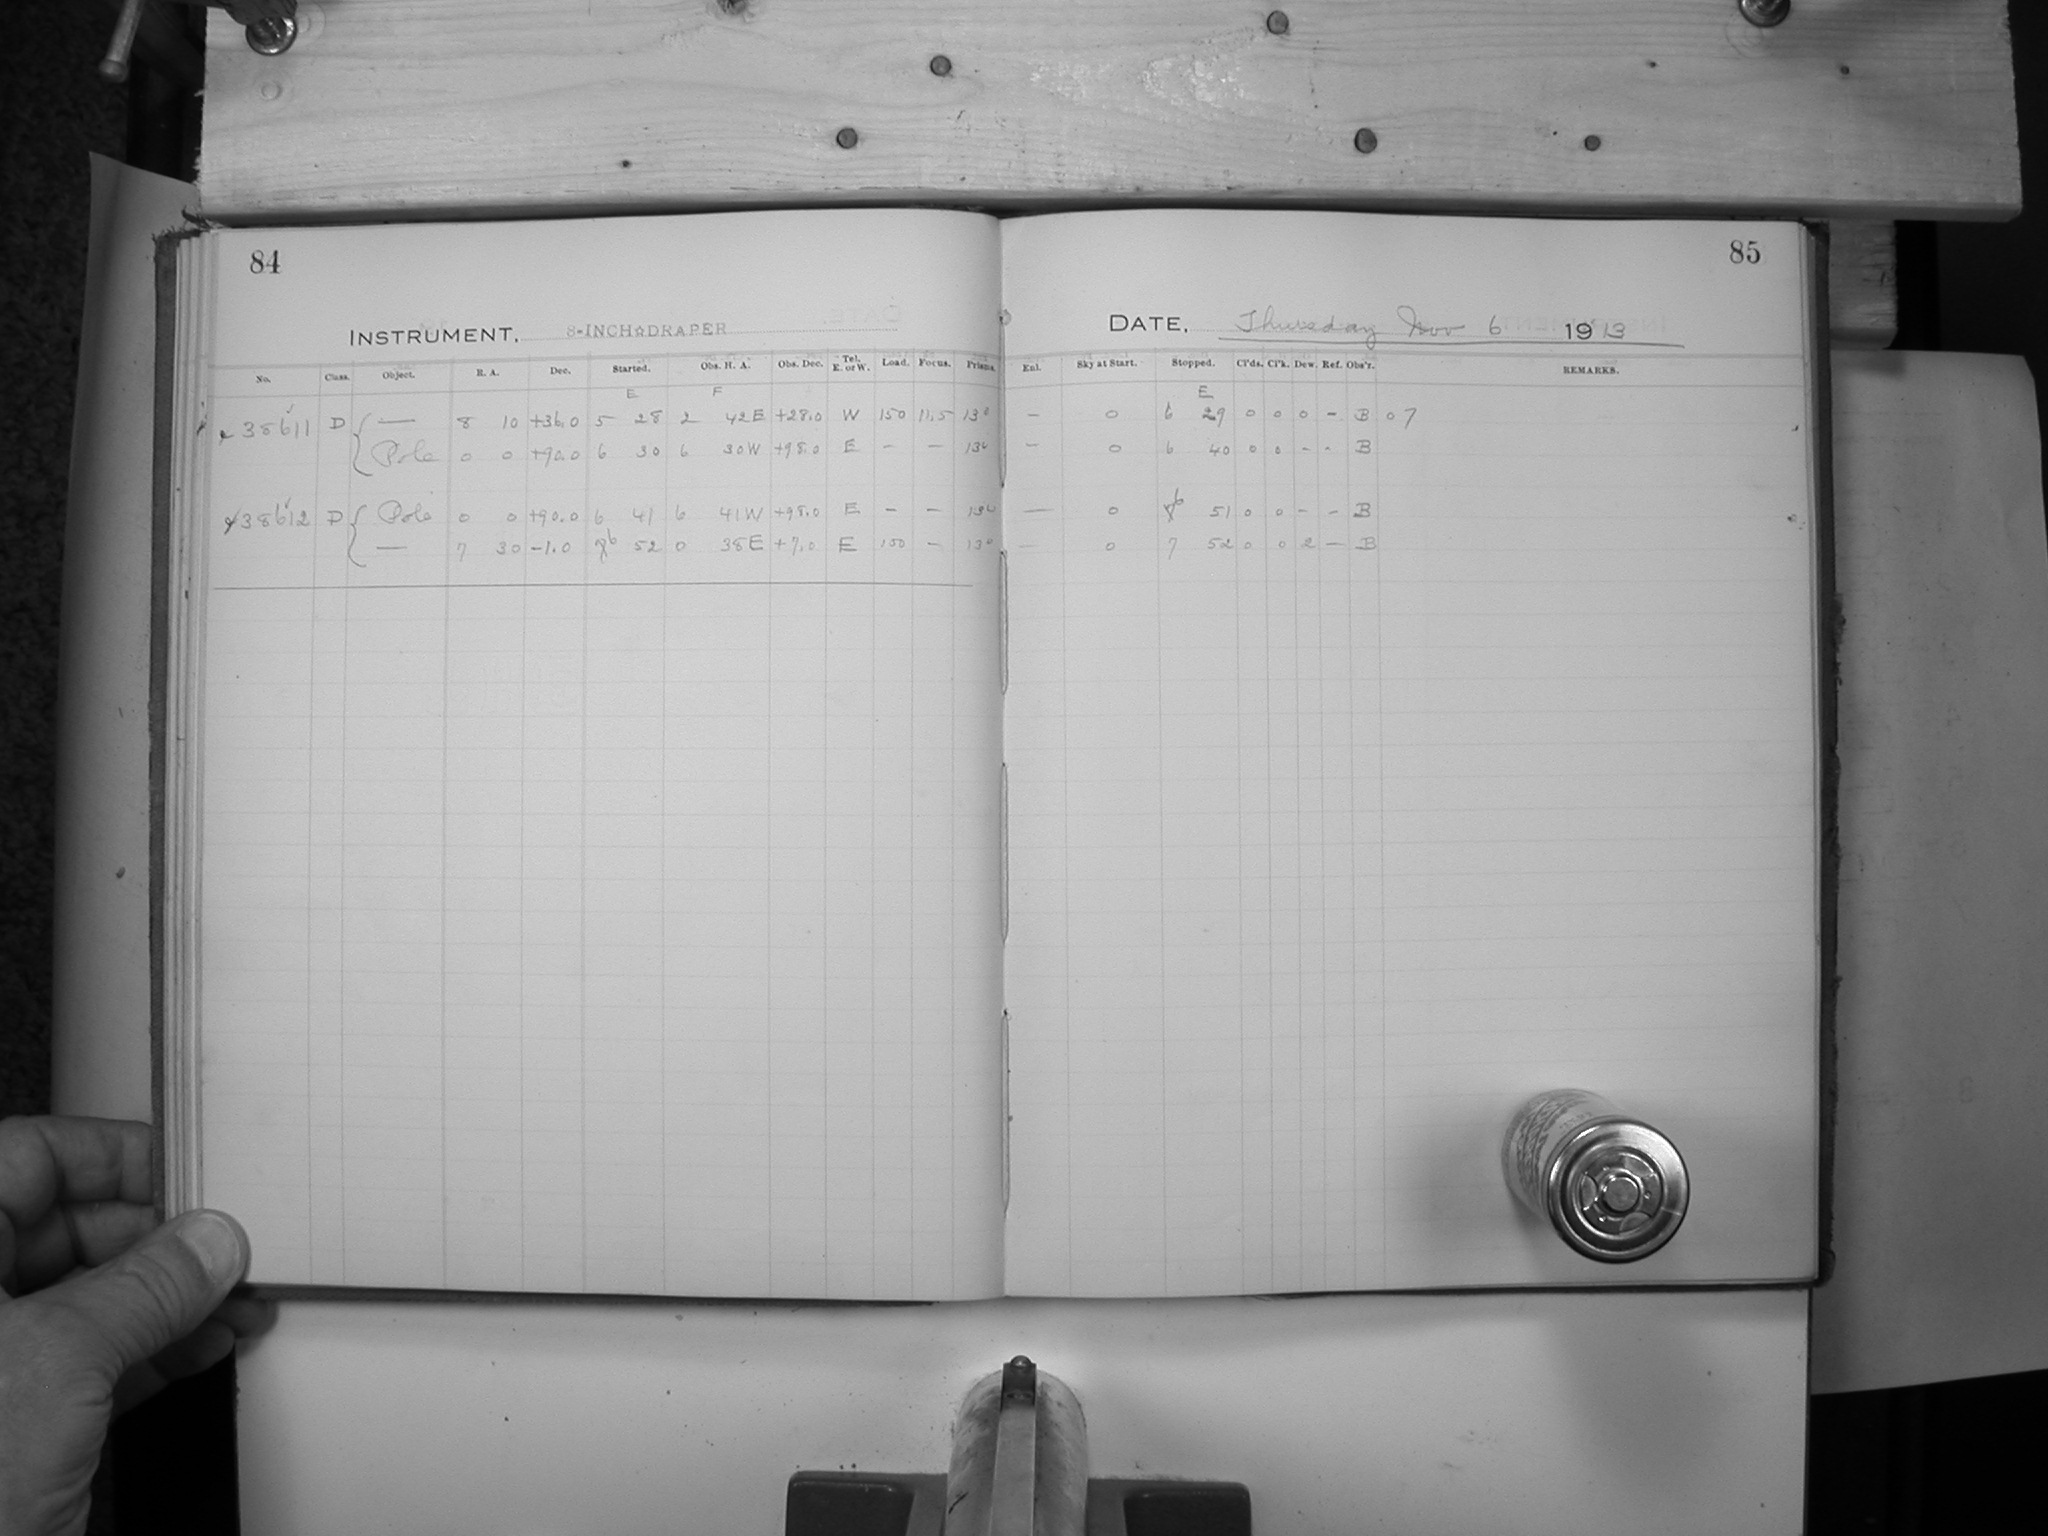 84
INSTRUMENT. 8-INCH DRAPER
No. Class. Object. R. A. Dec. Started. Obs. H. A. Obs. Dec. Tel. E. or W. Load. Focus. Prisms.
E F
38611 D — 8 10 +36.0 5 28 2 42E +28.0 W 150 11.5 130
Pole 0 0 +90.0 6 30 6 30W +98.0 E — — 130
38612 D Pole 0 0 +90.0 6 41 6 41W +98.0 E — — 130
— 7 30 -1.0 6 52 0 38E +7.0 E 150 — 130
85
DATE. Thursday Nov 6 1913
Enl. Sky at Start. Stopped. Cl'ds. Cl'k. Dew. Ref. Obs'r. REMARKS.
E
— 0 6 29 0 0 0 - B 07
— 0 6 40 0 0 - - B
— 0 6 51 0 0 - - B
— 0 7 52 0 0 2 — B